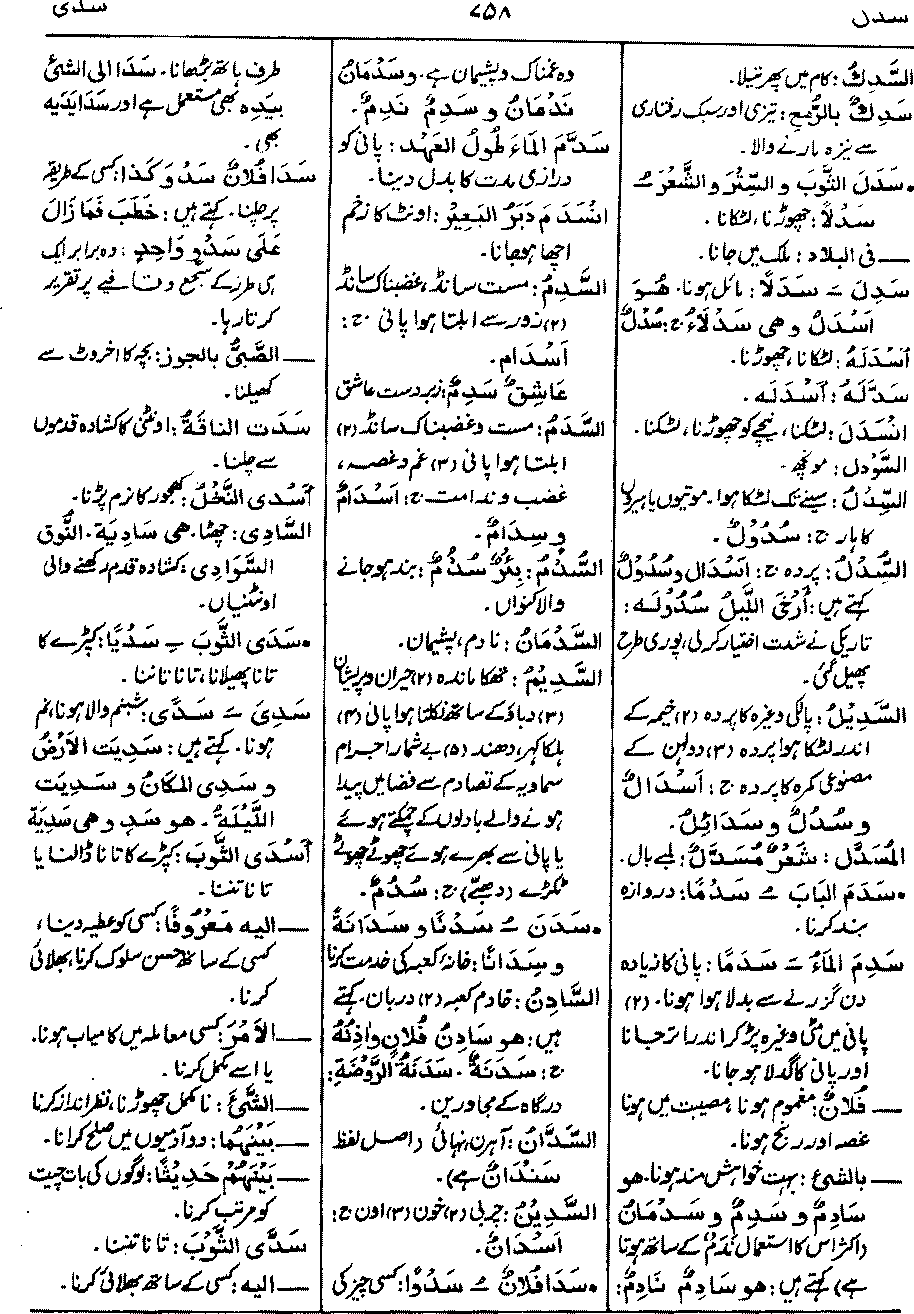 سدل
۷۵۸
سدی
السَّدِكُ: کام میں پھرتیلا.
سَدِكٌ بالرُّمحِ: تیزی اور سبک رفتاری
سے نیزہ مارنے والا.
•سَدَلَ الثَّوبَ و السِّتْرَ و الشَّعْرَ ـُ
سَدْلًا: چھوڑنا، لٹکانا.
— فی البلاد: ملک میں جانا.
سَدِلَ ـَ سَدَلًا: مائل ہونا. هُوَ
اَسْدَلُ و هی سَدْلَاءُ ج: سُدْلٌ
اَسْدَلَهٗ: لٹکانا، چھوڑنا.
سَدَّلَهٗ: اَسْدَلَه.
انْسَدَلَ: لٹکنا، نیچے کو چھوڑنا، لٹکنا.
السَّوْدَل: مونچھ.
السِّدْلُ: سینے تک لٹکا ہوا. موتیوں یا ہیروں
کا ہار ج: سُدُوْلٌ.
السُّدْلُ: پردہ ج: اَسْدَال و سُدُوْلٌ
کہتے ہیں: أَرْخَى اللَّيْلُ سُدُوْلَه:
تاریکی نے شدت اختیار کرلی، پوری طرح
پھیل گئی.
السَّدِيْلُ: پالکی وغیرہ کا پردہ (۲) خیمہ کے
اندر لٹکا ہوا پردہ (۳) دولہن کے
مصنوعی کمرہ کا پردہ ج: اَسْدَالٌ
و سُدُلٌ و سَدَائِلُ.
المُسَدَّل: شَعْرٌ مُسَدَّلٌ: لمبے بال.
•سَدَمَ البَابَ ـُ سَدْمًا: دروازہ
بند کرنا.
سَدِمَ المَاءُ ـَ سَدَمًا: پانی کا زیادہ
دن گزرنے سے بدلا ہوا ہونا. (۲)
پانی میں مٹی وغیرہ پڑ کر اندر اتر جانا
اور پانی کا گدلا ہوجانا.
— فُلَانٌ: مغموم ہونا، مصیبت میں ہونا
غصہ اور رنج ہونا.
— بالشیءِ: بہت خواہش مند ہونا. هو
سَادِمٌ و سَدِمٌ و سَدْمَانُ
(اکثر اس کا استعمال نَدَمٌ کے ساتھ ہوتا
ہے) کہتے ہیں: هو سَادِمٌ نَادِمٌ:
وہ غمناک و پشیمان ہے. و سَدْمَانُ
نَدْمَانُ و سَدِمٌ نَدِمٌ.
سَدَّمَ المَاءَ طُولُ العَهْدِ: پانی کو
درازی مدت کا بدل دینا.
انْسَدَمَ دَبَرُ البَعِيْرِ: اونٹ کا زخم
اچھا ہوجانا.
السَّدِمُ: مست سانڈ، غضبناک سانڈ
(۲) زور سے ابلتا ہوا پانی ج:
اَسْدَام.
عَاشِقٌ سَدِمٌ: زبردست عاشق
السَّدَمُ: مست و غضبناک سانڈ (۲)
ابلتا ہوا پانی (۳) غم و غصہ،
غضب و ندامت ج: اَسْدَامٌ
و سِدَامٌ.
السُّدُمُ: بِئْرٌ سُدُمٌ: بند ہوجانے
والا کنواں.
السَّدْمَانُ: نادم، پشیمان.
السَّدِيْمُ: تھکا ماندہ (۲) حیران و پریشان
(۳) دباؤ کے ساتھ نکلتا ہوا پانی (۴)
ہلکا کہر، دھند (۵) بے شمار اجرام
سماویہ کے تصادم سے فضا میں پیدا
ہونے والے بادلوں کے چمکتے ہوئے
یا پانی سے بھرے ہوئے چھوٹے چھوٹے
ٹکڑے (دھبے) ج: سُدُمٌ.
•سَدَنَ ـُ سَدْنًا و سَدَانَةً
و سِدَانًا: خانہ کعبہ کی خدمت کرنا
السَّادِنُ: خادم کعبہ (۲) دربان. کہتے
ہیں: هو سَادِنُ فُلَانٍ وَاٰذِنُهٗ
ج: سَدَنَةٌ. سَدَنَةُ الرَّوْضَةِ:
درگاہ کے مجاورین.
السَّدَّانُ: آہرن، نہائی (اصل لفظ
سَنْدَانٌ ہے).
السَّدِيْنُ: چربی (۲) خون (۳) اون ج:
اَسْدَانٌ.
•سَدَا فُلَانٌ ـُ سَدْوًا: کسی چیز کی
طرف ہاتھ بڑھانا. سَدَا الی الشیء
بیدِہ بھی مستعمل ہے اور سَدَا یَدَیه
بھی.
سَدَا فُلَانٌ سَدْوَ كَذَا: کسی کے طریقہ
پر چلنا. کہتے ہیں: خَطَبَ فَمَا زَالَ
عَلَى سَدْوٍ وَاحِدٍ: وہ برابر ایک
ہی طرز کے سجع و قافیے پر تقریر
کرتا رہا.
— الصَّبِيُّ بالجوزِ: بچہ کا اخروٹ سے
کھیلنا.
سَدَتِ النَاقَةُ: اونٹنی کا کشادہ قدموں
سے چلنا.
اَسْدَى النَّخْلُ: کھجور کا نرم پڑنا.
السَّادِی: چھٹا. هی سَادِيَة. النُّوق
السَّوَادِی: کشادہ قدم رکھنے والی
اونٹنیاں.
•سَدَى الثَّوبَ ـِ سَدْيًا: کپڑے کا
تانا پھیلانا، تانا تاننا.
سَدِيَ ـَ سَدًى: شبنم والا ہونا، نم
ہونا. کہتے ہیں: سَدِيَتِ الاَرْضُ
و سَدِيَ المَكَانُ و سَدِيَتِ
اللَّيْلَةُ. هو سَدٍ و هی سَدِيَة
اَسْدَى الثَّوْبَ: کپڑے کا تانا ڈالنا یا
تانا تننا.
— الیه مَعْرُوفًا: کسی کو عطیہ دینا،
کسی کے ساتھ حسن سلوک کرنا، بھلائی
کرنا.
— الاَمْرَ: کسی معاملہ میں کامیاب ہونا.
یا اسے مکمل کرنا.
— الشَّیْءَ: نامکمل چھوڑنا، نظر انداز کرنا
— بَيْنَهُمَا: دو آدمیوں میں صلح کرانا.
— بَيْنَهُمْ حَدِيْثًا: لوگوں کی بات چیت
کو مرتب کرنا.
سَدَّى الثَّوْبَ: تانا تننا.
— الیه: کسی کے ساتھ بھلائی کرنا.